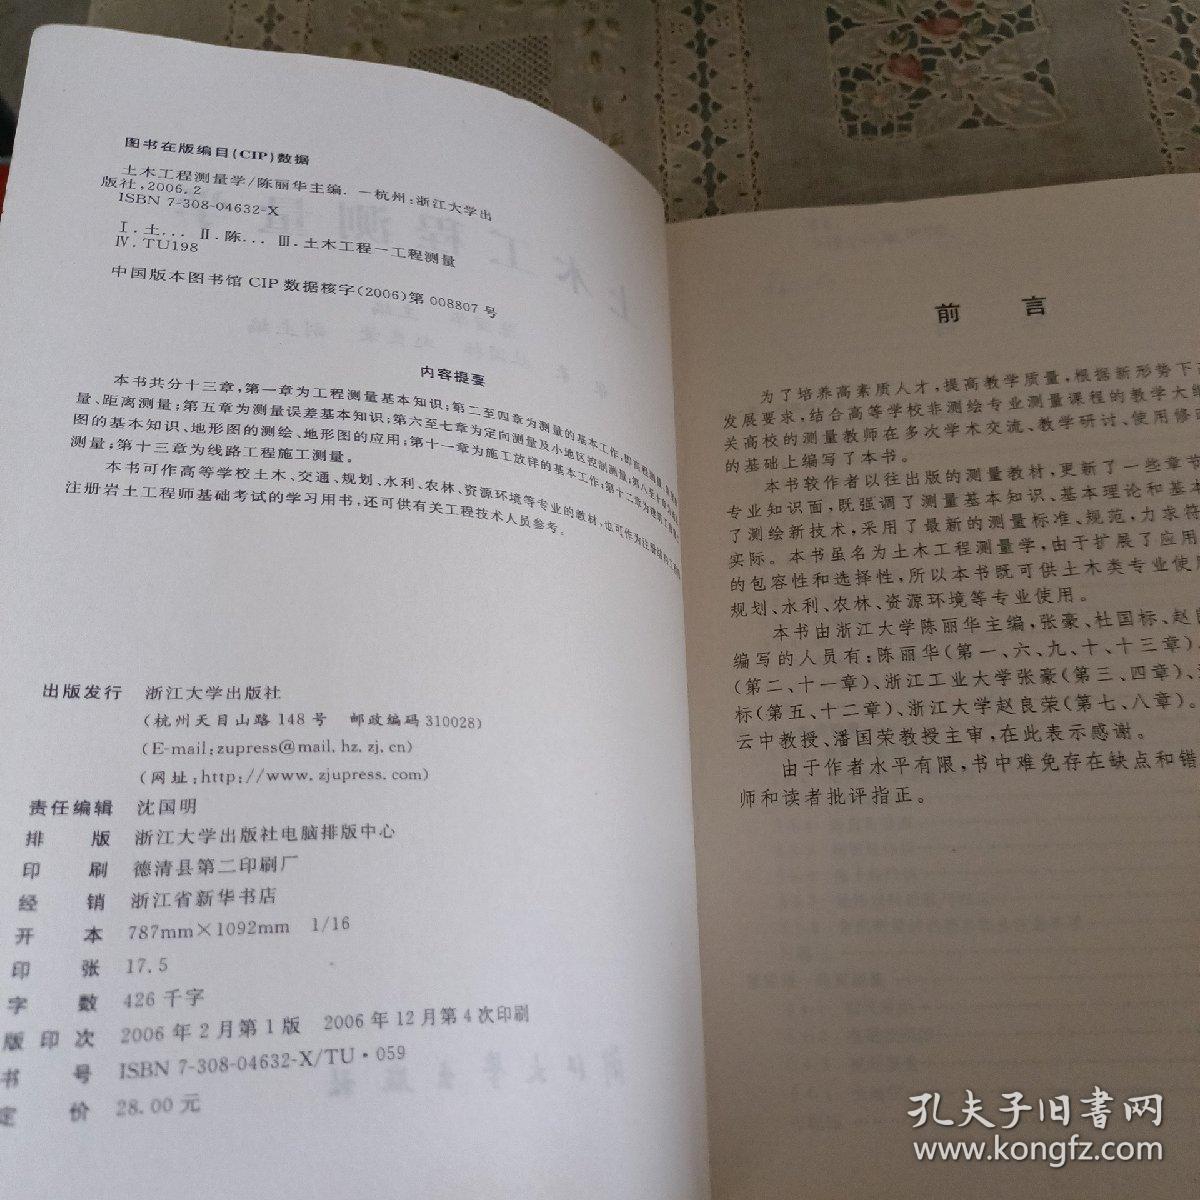 图书在版编目(CIP)数据
土木工程测量学/陈丽华主编. —杭州:浙江大学出
版社,2006.2
ISBN 7-308-04632-X
Ⅰ.土… Ⅱ.陈… Ⅲ.土木工程—工程测量
Ⅳ.TU198
中国版本图书馆 CIP 数据核字(2006)第 008807 号
内容提要
本书共分十三章,第一章为工程测量基本知识;第二至四章为测量的基本工作,即高程测量、
量、距离测量;第五章为测量误差基本知识;第六至七章为定向测量及小地区控制测量;第八至十章为
图的基本知识、地形图的测绘、地形图的应用;第十一章为施工放样的基本工作;第十二章为建筑工
测量;第十三章为线路工程施工测量。
本书可作高等学校土木、交通、规划、水利、农林、资源环境等专业的教材,也可作为注册结构工程师
注册岩土工程师基础考试的学习用书,还可供有关工程技术人员参考。
出版发行 浙江大学出版社
(杭州天目山路 148 号 邮政编码 310028)
(E-mail:zupress@mail.hz.zj.cn)
(网址:http://www.zjupress.com)
责任编辑 沈国明
排 版 浙江大学出版社电脑排版中心
印 刷 德清县第二印刷厂
经 销 浙江省新华书店
开 本 787mm×1092mm 1/16
印 张 17.5
字 数 426 千字
版 印 次 2006 年 2 月第 1 版 2006 年 12 月第 4 次印刷
书 号 ISBN 7-308-04632-X/TU·059
定 价 28.00 元
前 言
为了培养高素质人才,提高教学质量,根据新形势下
发展要求,结合高等学校非测绘专业测量课程的教学大纲
关高校的测量教师在多次学术交流、教学研讨、使用修
的基础上编写了本书。
本书较作者以往出版的测量教材,更新了一些章节
专业知识面,既强调了测量基本知识、基本理论和基本
了测绘新技术,采用了最新的测量标准、规范,力求符
实际。本书虽名为土木工程测量学,由于扩展了应用
的包容性和选择性,所以本书既可供土木类专业使用
规划、水利、农林、资源环境等专业使用。
本书由浙江大学陈丽华主编,张豪、杜国标、赵良
编写的人员有:陈丽华(第一、六、九、十、十三章)、
(第二、十一章)、浙江工业大学张豪(第三、四章)、
标(第五、十二章)、浙江大学赵良荣(第七、八章)。
云中教授、潘国荣教授主审,在此表示感谢。
由于作者水平有限,书中难免存在缺点和错
师和读者批评指正。
孔夫子旧书网
www.kongfz.com